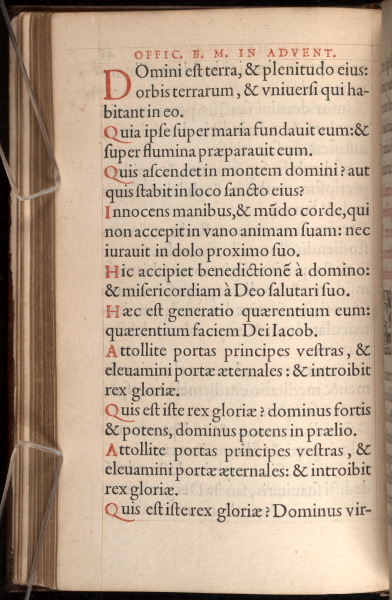 OFFIC. B. M. IN ADVENT.
DOmini eſt terra, & plenitudo eius:
orbis terrarum, & vniuerſi qui ha-
bitant in eo.
Quia ipſe ſuper maria fundauit eum:&
ſuper flumina præparauit eum.
Quis aſcendet in montem domini? aut
quis ſtabit in loco ſancto eius?
Innocens manibus, & mūdo corde, qui
non accepit in vano animam ſuam: nec
iurauit in dolo proximo ſuo.
Hic accipiet benedictionē à domino:
& miſericordiam à Deo salutari ſuo.
Hæc eſt generatio quærentium eum:
quærentium faciem Dei Iacob.
Attollite portas principes veſtras, &
eleuamini portæ æternales: & introibit
rex gloriæ.
Quis eſt iſte rex gloriæ? dominus fortis
& potens, dominus potens in prælio.
Attollite portas principes veſtras, &
eleuamini portæ æternales: & introibit
rex gloriæ.
Quis eſt iſte rex gloriæ? Dominus vir-